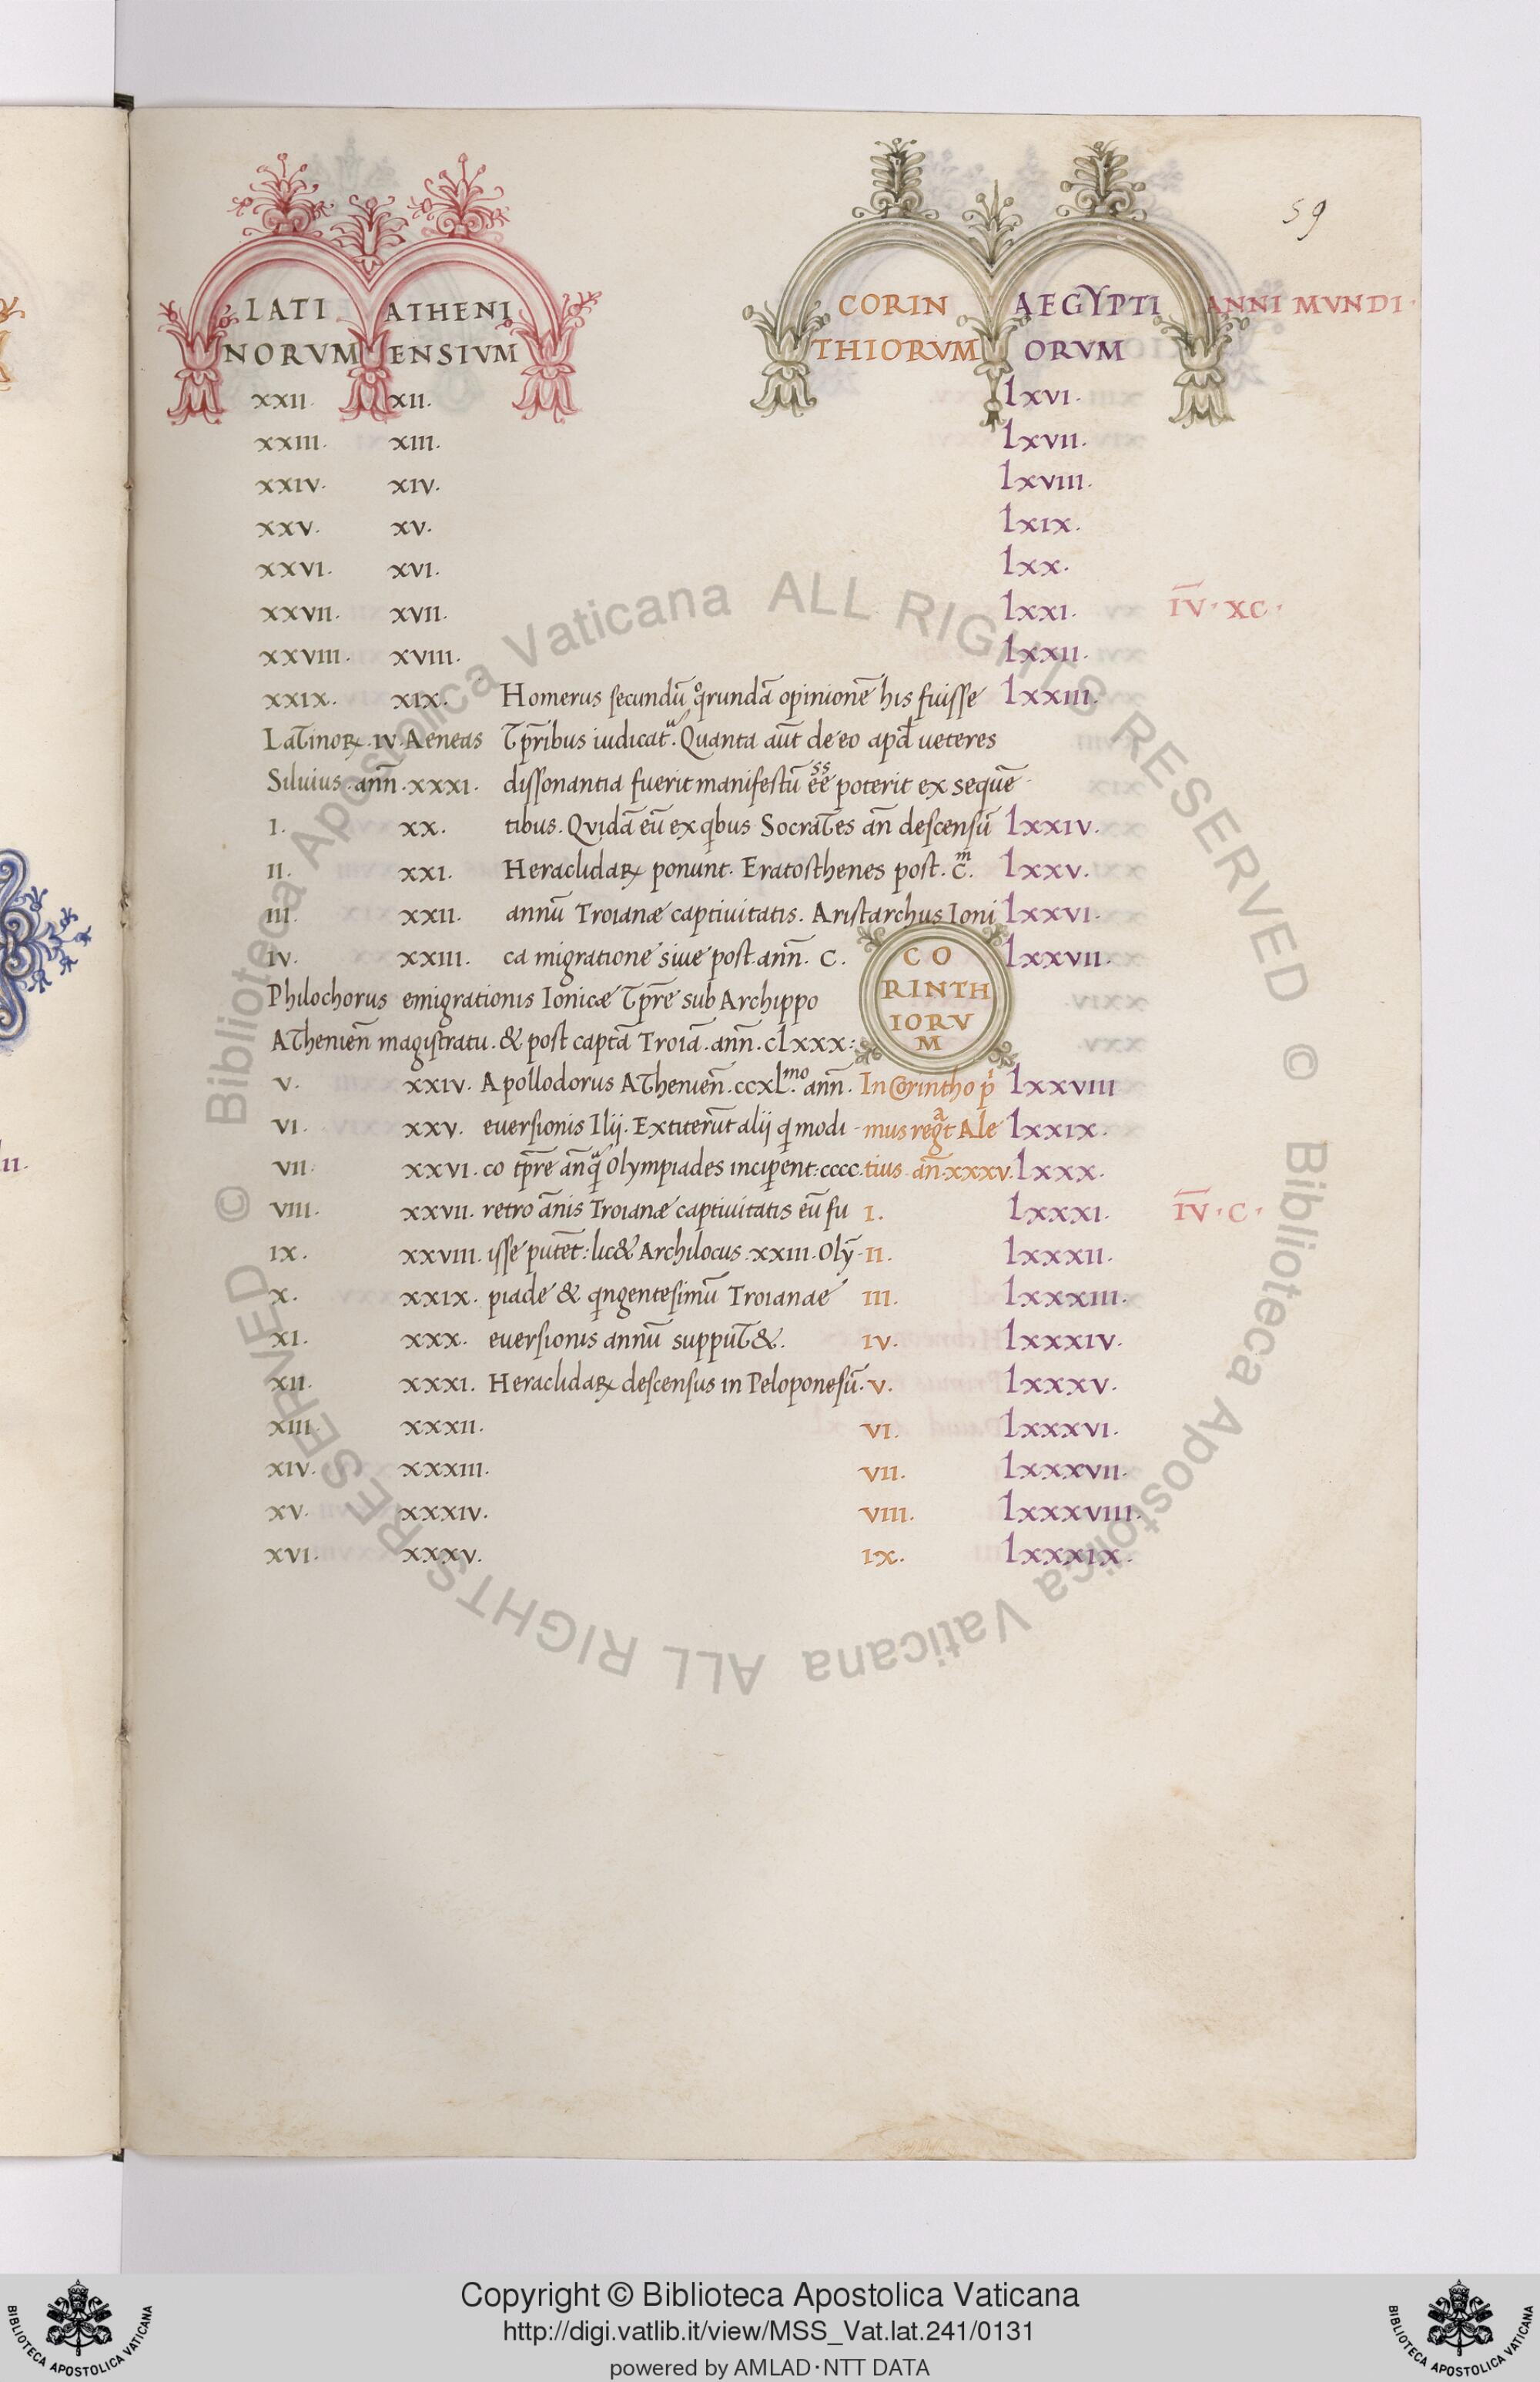 59
LATI ATHENI CORIN AEGYPTI ANNI MVNDI·
NORVM ENSIVM THIORVM ORVM
xxII. xII. lxvI.
xxIII. xIII. lxvII.
xxIV. xIV. lxvIII.
xxv. xv. lxIx.
xxvI. xvI. lxx.
xxvII. xvII. lxxI. I̅V̅·XC·
xxvIII. xvIII. lxxII.
xxIx. xIx. Homerus secundū qͦrundā opinionē his fuisse lxxIII.
Latinoꝝ·IV·Aeneas tp̄ribus iudicatᵃ. Quanta aūt de eo apđ ueteres
Siluius·ann̄·xxxI. dissonantia fuerit manifestū ēē poterit ex sequē
I. xx. tibus. Qvidā eū ex qbus Socrates añ descensū lxxIV.
II. xxI. Heraclidaꝝ ponunt. Eratosthenes post. c̄ᵐ. lxxv.
III. xxII. annū Troianæ captiuitatis. Aristarchus Ioni lxxvI.
IV. xxIII. ca migratione siue post ann̄. C. lxxvII.
CO
RINTH
IORV
M
Philochorus emigrationis Ionicæ tp̄re sub Archippo
Atheniēn magistratu. & post captā Troiā. ann̄. clxxx:
v. xxIV. Apollodorus Atheniēn. ccxl.ᵐᵒ ann̄. In Corintho pⁱ lxxvIII
vI. xxv. euersionis Ilij. Extiterūt alij q modi mus regᵃt Ale lxxIx.
vII. xxvI. co tp̄re anq̄ᵃ Olympiades incipēnt: cccc. tius añ·xxxv. lxxx.
vIII. xxvII. retro ānis Troianæ captiuitatis eū fu I. lxxxI. I̅V̅·C·
Ix. xxvIII. isse putēt: lic& Archilocus. xxIII. Olȳ II. lxxxII.
x. xxIx. piade & qngentesimū Troianae III. lxxxIII.
xI. xxx. euersionis annū supput&. IV. lxxxIV.
xII. xxxI. Heraclidaꝝ descensus in Peloponesū. v. lxxxv.
xIII. xxxII. vI. lxxxvI.
xIV. xxxIII. vII. lxxxvII.
xv. xxxIV. vIII. lxxxvIII.
xvI. xxxv. Ix. lxxxIx.
© Biblioteca Apostolica Vaticana ALL RIGHTS RESERVED
© Biblioteca Apostolica Vaticana ALL RIGHTS RESERVED
Copyright © Biblioteca Apostolica Vaticana
http://digi.vatlib.it/view/MSS_Vat.lat.241/0131
powered by AMLAD·NTT DATA
BIBLIOTECA APOSTOLICA VATICANA
BIBLIOTECA APOSTOLICA VATICANA